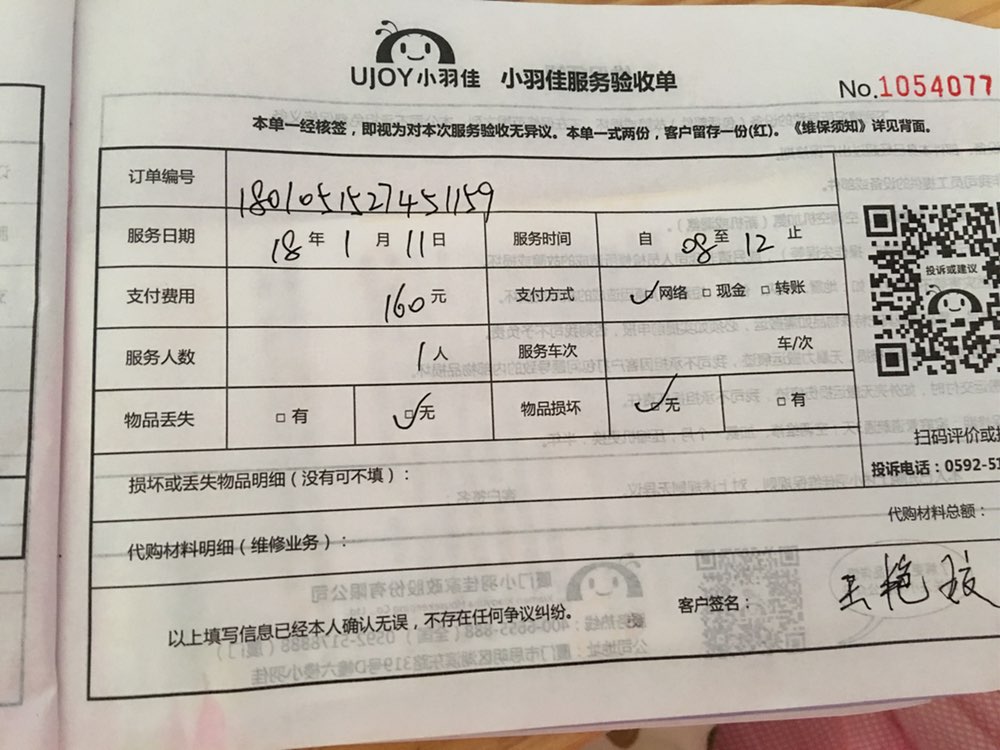 UJOY小羽佳 小羽佳服务验收单
No.1054077
本单一经核签，即视为对本次服务验收无异议。本单一式两份，客户留存一份(红)。《维保须知》详见背面。
订单编号 1801051527451159
服务日期 18 年 1 月 11 日 服务时间 自 08 至 12 止
支付费用 160 元 支付方式 ✓网络 □ 现金 □ 转账
投诉或建议
服务人数 1 人 服务车次 车/次
物品丢失 □ 有 ✓无 物品损坏 ✓无 □ 有
扫码评价或投
投诉电话：0592-51
损坏或丢失物品明细（没有可不填）：
代购材料明细（维修业务）：
代购材料总额：
以上填写信息已经本人确认无误，不存在任何争议纠纷。
客户签名：